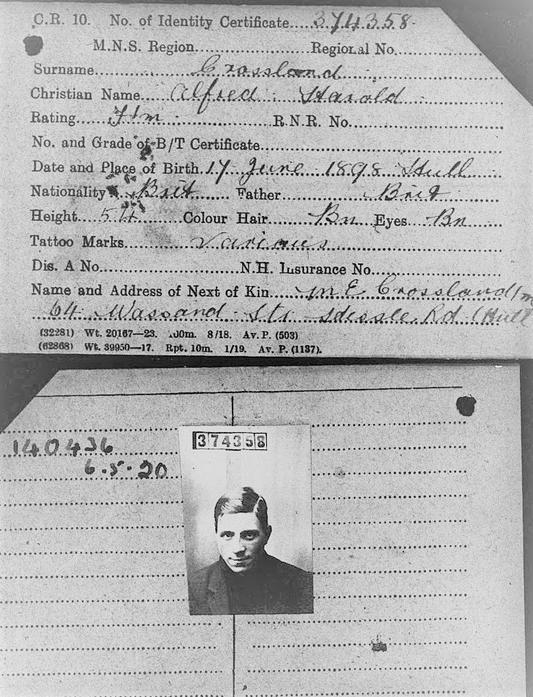 C.R. 10. No. of Identity Certificate 374358
M.N.S. Region Regional No.
Surname Crossland
Christian Name Alfred Harold
Rating Ftm R.N.R. No.
No. and Grade of B/T Certificate
Date and Place of Birth 17 June 1898 Hull
Nationality Brit Father Brit
Height 5 Colour Hair Bn Eyes Bn
Tattoo Marks Various
Dis. A No. N.H. Insurance No.
Name and Address of Next of Kin M E Crossland/m
64 Wassand Str Hessle Rd Hull
(32281) Wt. 20167—23. 100m. 8/18. Av. P. (503)
(62868) Wt. 39950—17. Rpt. 10m. 1/19. Av. P. (1137).
140436
6.5.20
374358